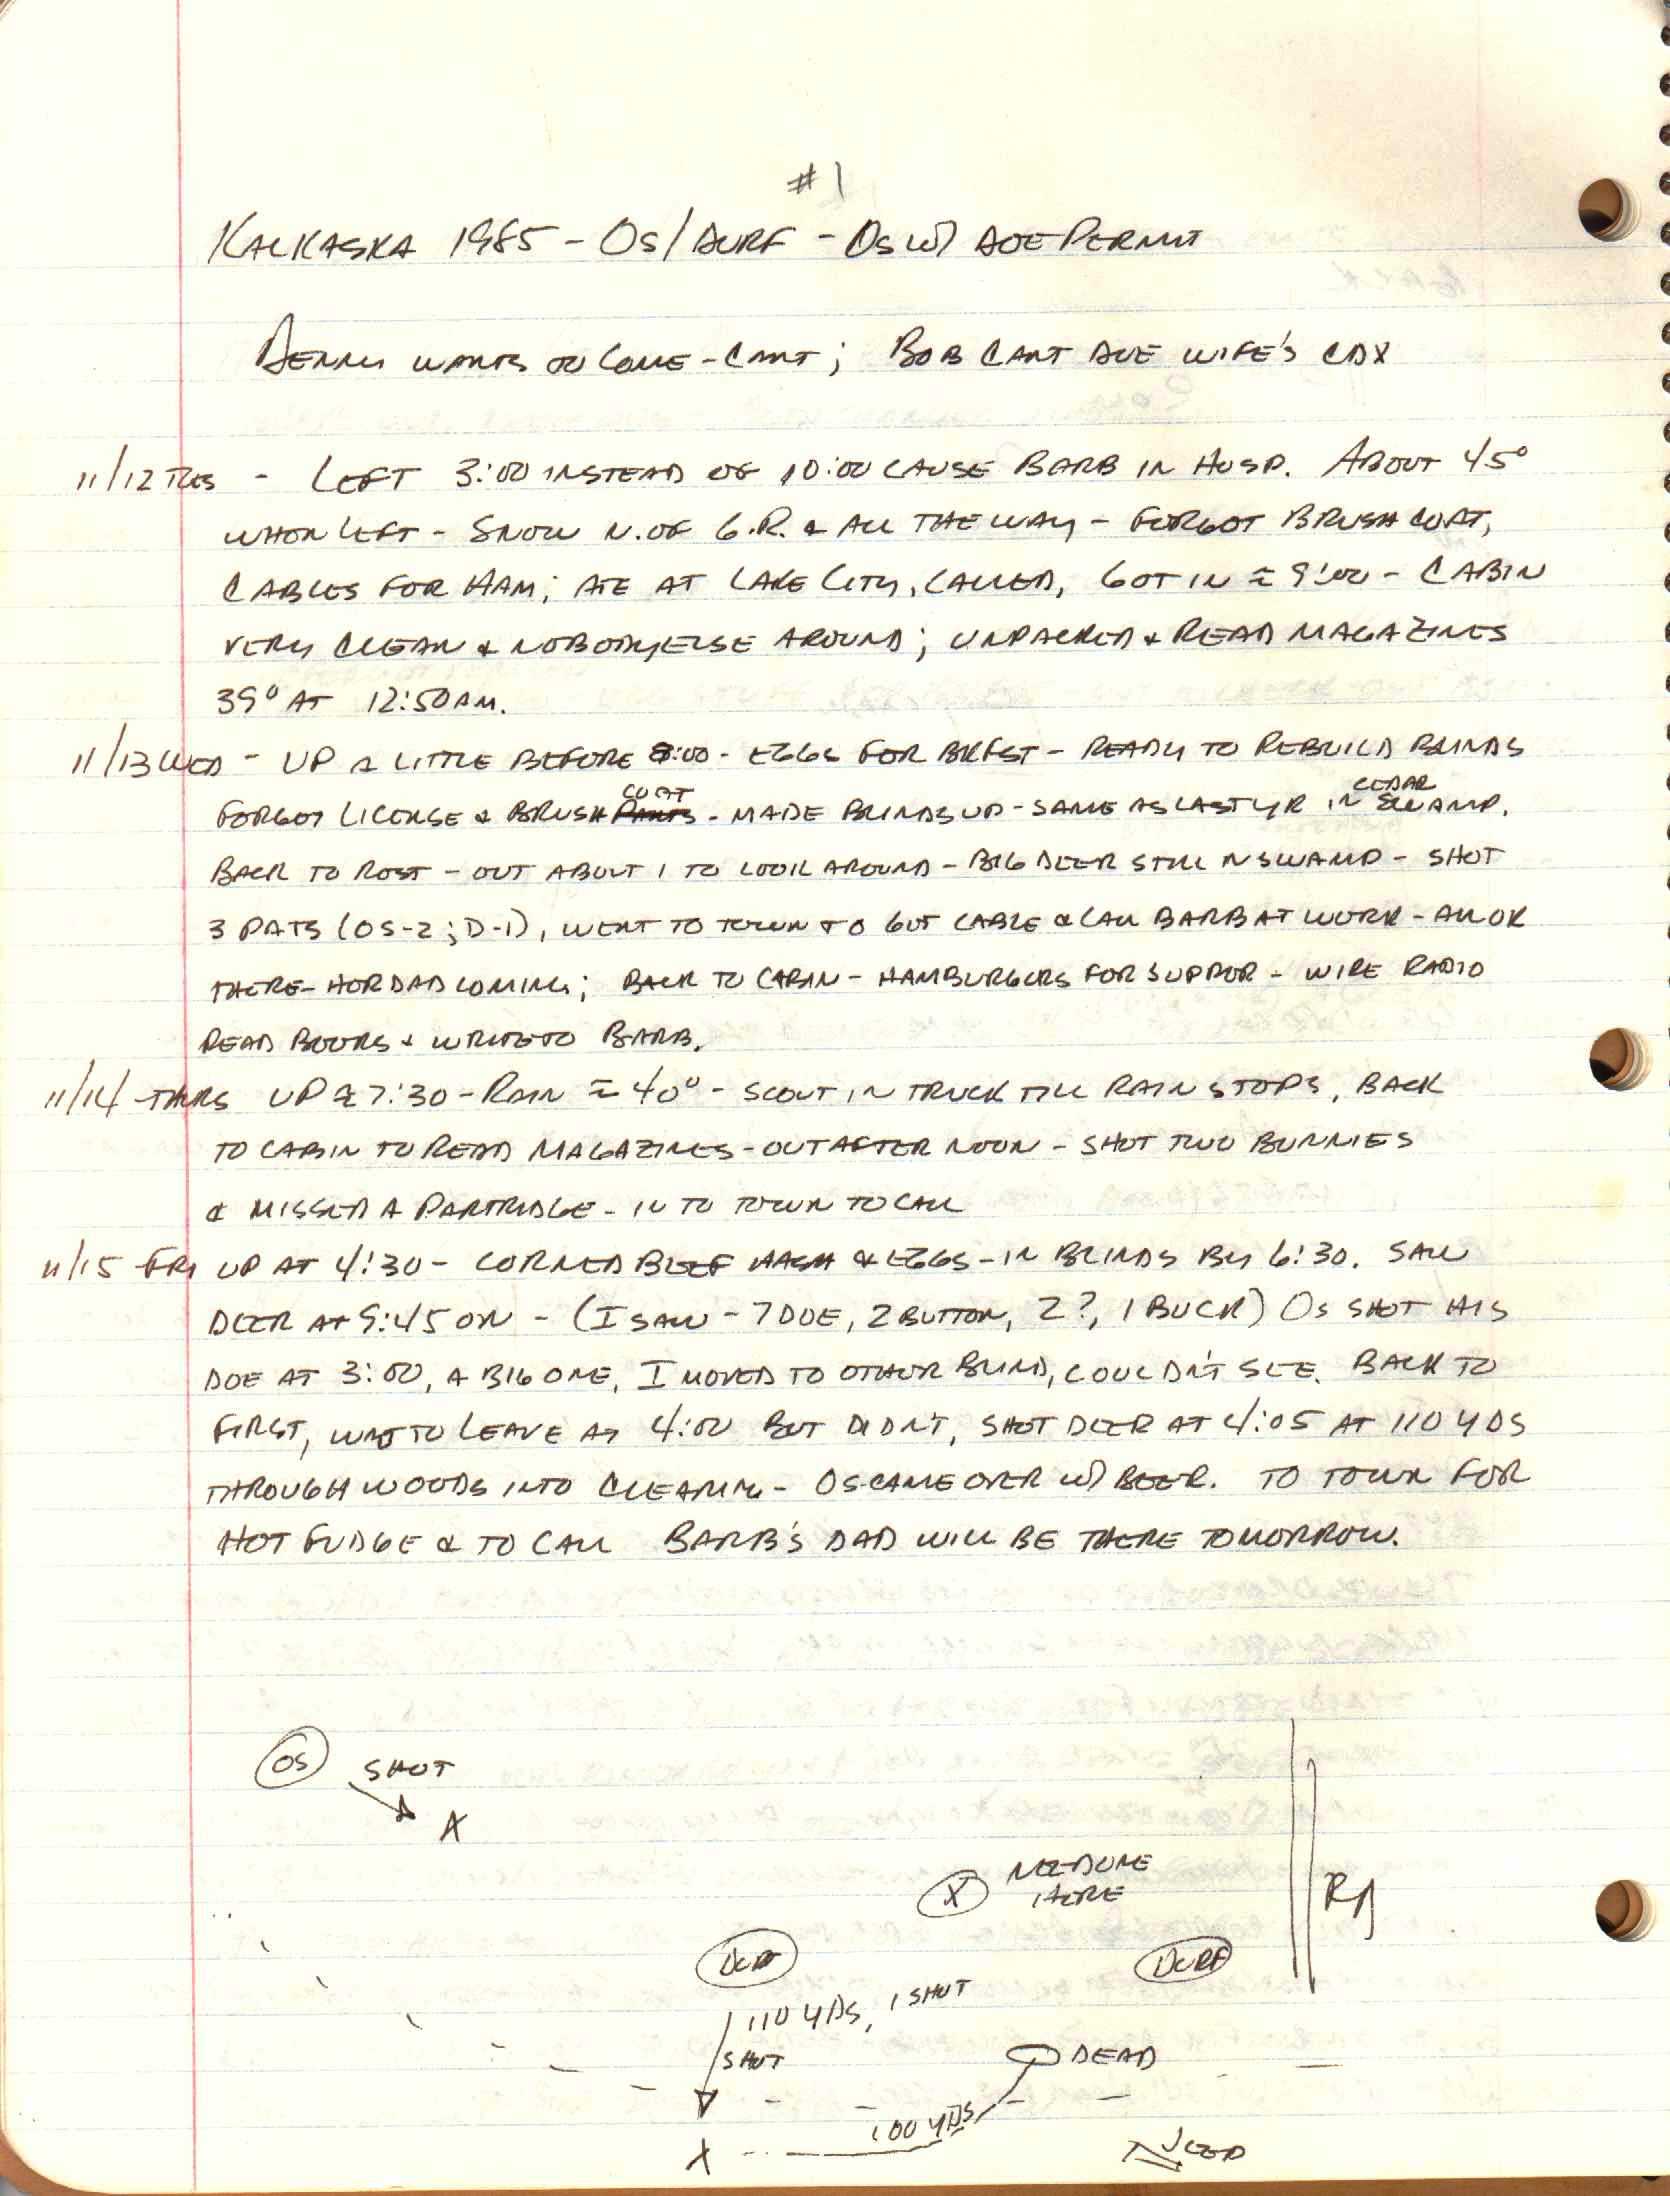 #1
KALKASKA 1985 - OS/DURF - OS W/ DOE PERMIT
DENNY WANTS TO COME - CANT; BOB CANT DUE WIFE'S
11/12 TUES - LEFT 3:00 INSTEAD OF 10:00 CAUSE BARB IN HOSP. ABOUT 45°
WHEN LEFT - SNOW N. OF G.R. & ALL THE WAY - FORGOT BRUSH COAT,
CABLES FOR HAM; ATE AT LAKE CITY, CALLED, GOT IN ≈ 9:00 - CABIN
VERY CLEAN & NOBODY ELSE AROUND; UNPACKED & READ MAGAZINES
39° AT 12:50 AM.
11/13 WED - UP A LITTLE BEFORE 8:00 - EGGS FOR BRKFST - READY TO REBUILD BLINDS
FORGOT LICENSE & BRUSH PANTS COAT - MADE BLINDS UP - SAME AS LAST YR IN CEDAR SWAMP.
BACK TO REST - OUT ABOUT 1 TO LOOK AROUND - BIG DEER STILL IN SWAMP - SHOT
3 PATS (OS-2; D-1), WENT TO TOWN TO GET CABLE & CALL BARB AT WORK - ALL OK
THERE - HER DAD COMING; BACK TO CABIN - HAMBURGERS FOR SUPPER - WIRE RADIO
READ BOOKS & WRITE TO BARB.
11/14 THURS UP ≈ 7:30 - RAIN ≈ 40° - SCOUT IN TRUCK TILL RAIN STOPS, BACK
TO CABIN TO READ MAGAZINES - OUT AFTER NOON - SHOT TWO BUNNIES
& MISSED A PARTRIDGE - IN TO TOWN TO CALL
11/15 FRI UP AT 4:30 - CORNED BEEF HASH & EGGS - IN BLINDS BY 6:30. SAW
DEER AT 9:45 ON - (I SAW - 7 DOE, 2 BUTTON, 2?, 1 BUCK) OS SHOT HIS
DOE AT 3:00, A BIG ONE, I MOVED TO OTHER BLIND, COULDN'T SEE. BACK TO
FIRST, WANT TO LEAVE AT 4:00 BUT DIDN'T, SHOT DEER AT 4:05 AT 110 YDS
THROUGH WOODS INTO CLEARING - OS CAME OVER W/ BEER. TO TOWN FOR
HOT FUDGE & TO CALL BARB'S DAD WILL BE THERE TOMORROW.
OS SHOT
X
X NEED ONE
HERE
RD
DURF
DURF
110 YDS, 1 SHOT
SHOT
DEAD
100 YDS
X